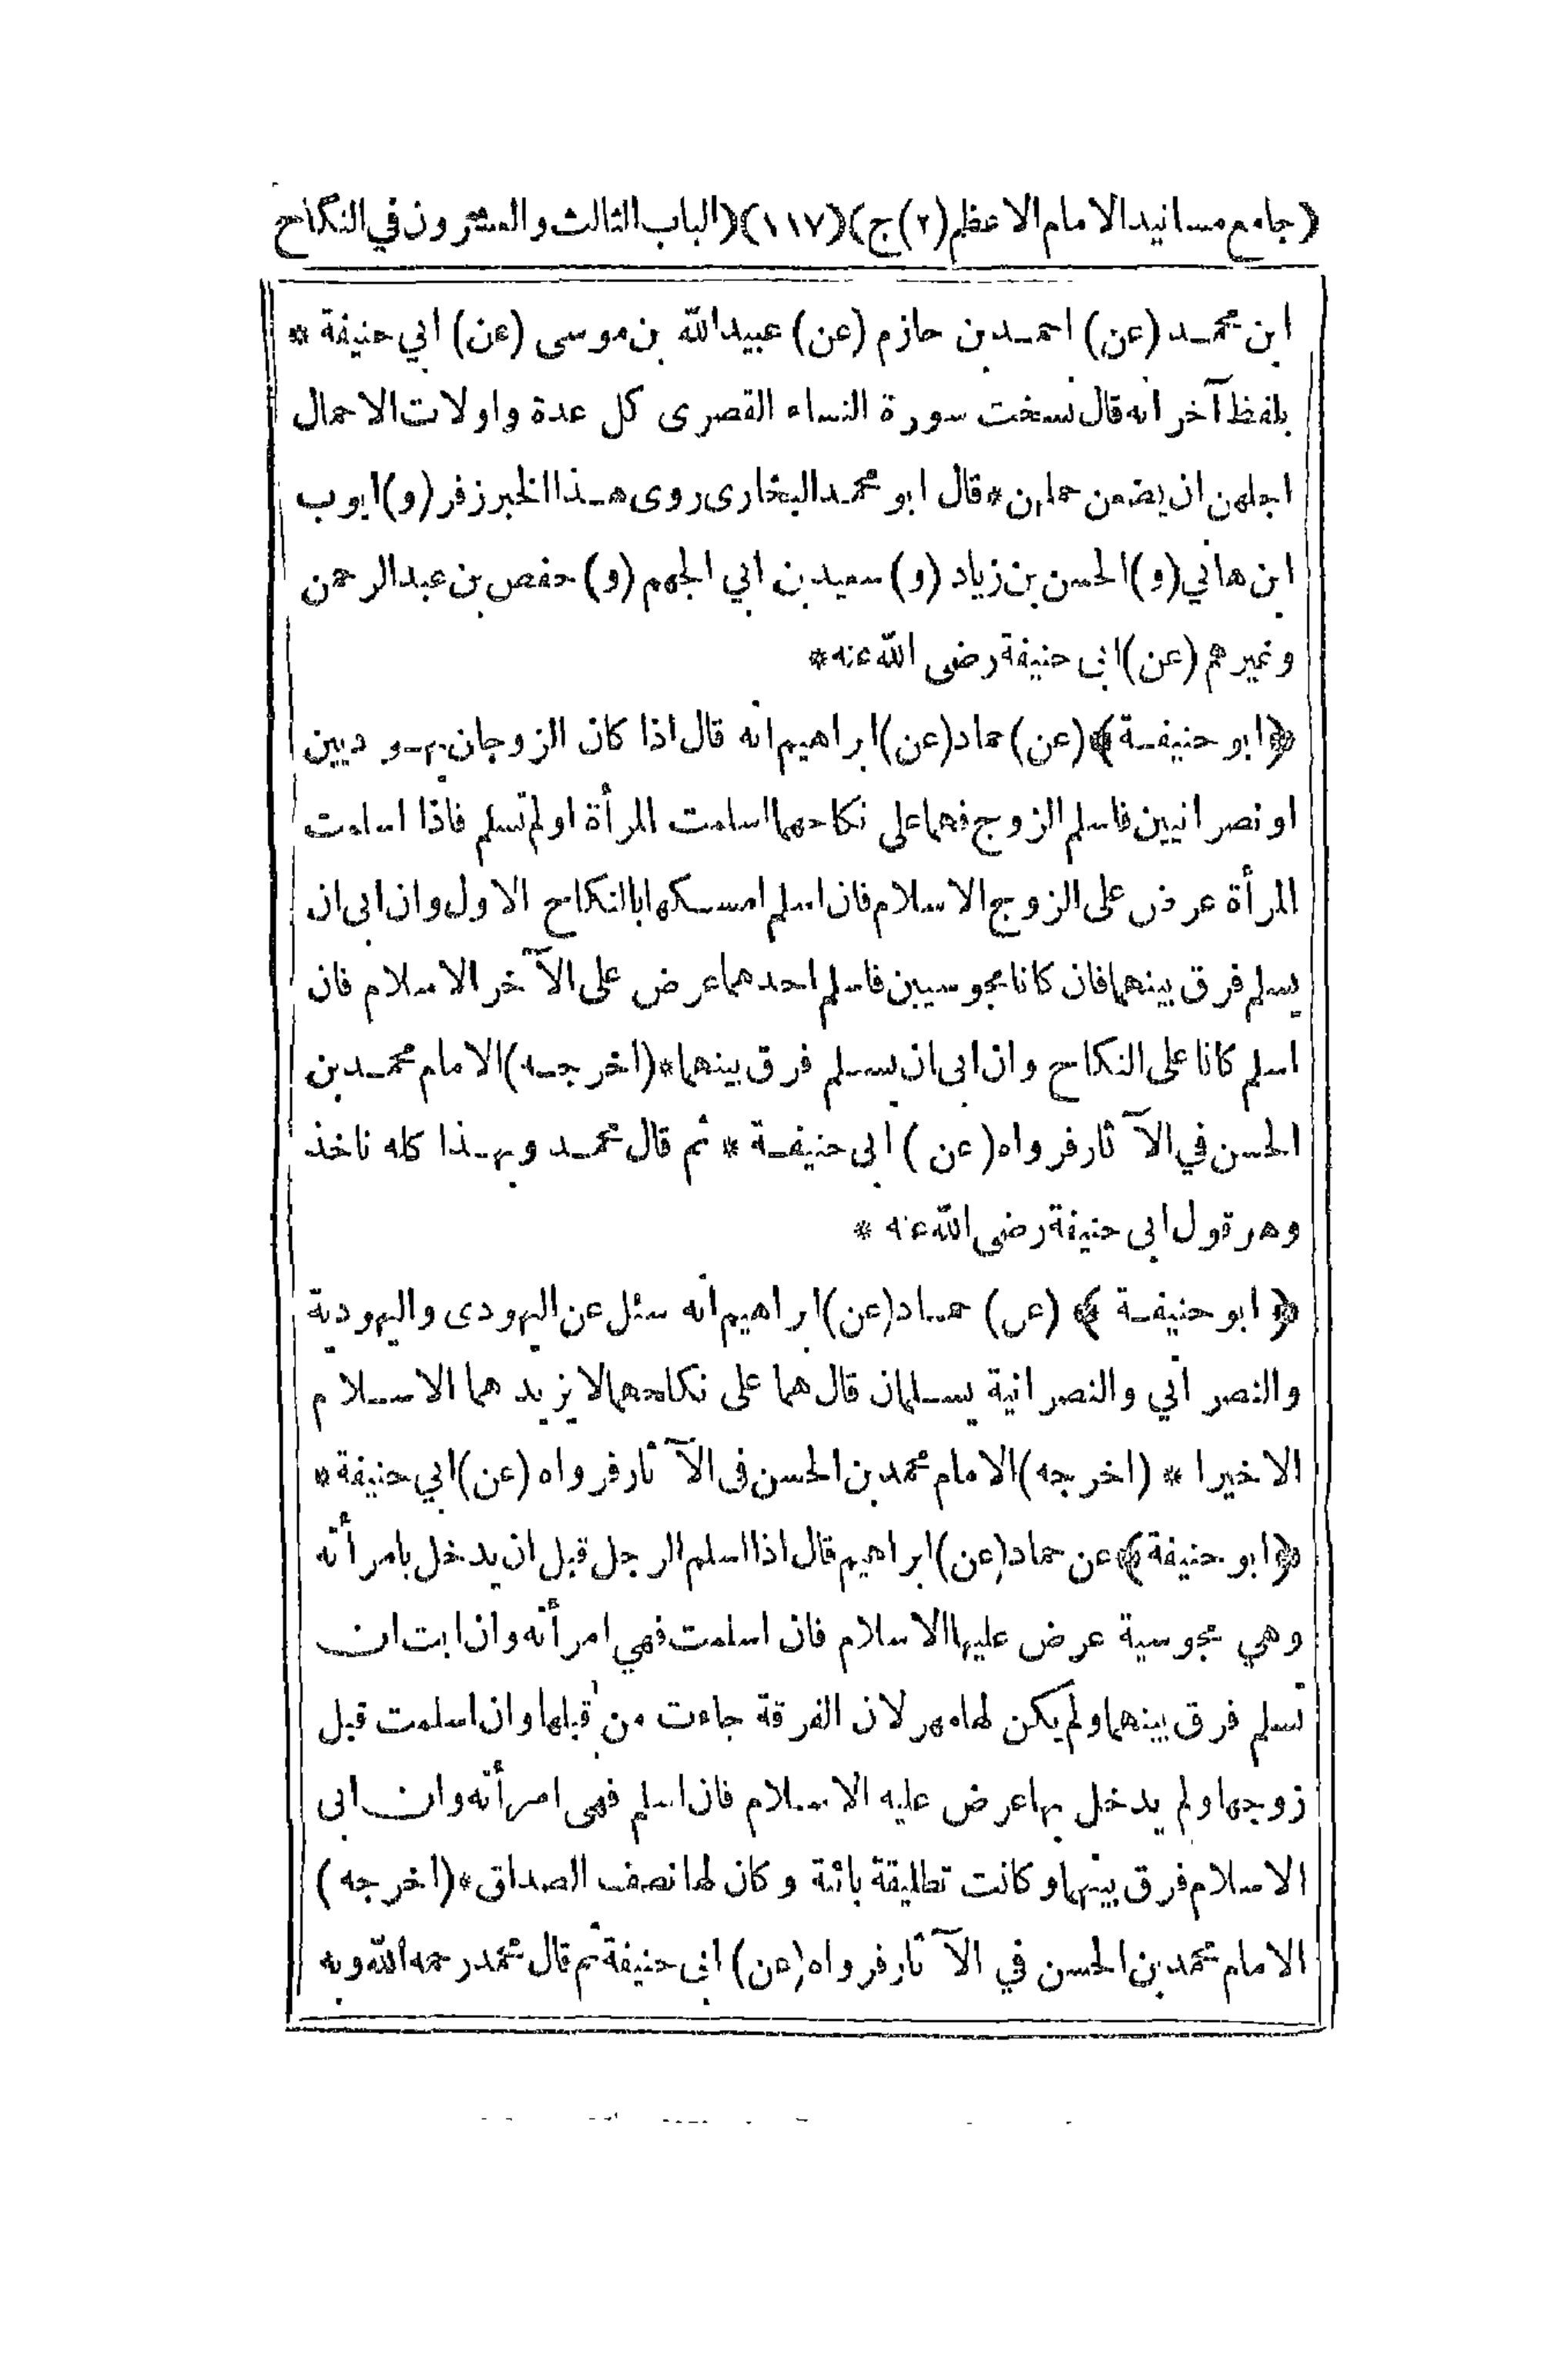 (جامع مسانيد الامام الاعظم (٢) ج) (١١٧) (الباب الثالث والعشرون في النكاح
ابن محمد (عن) احمد بن حازم (عن) عبيد الله بن موسى (عن) ابي حنيفة *
بلفظ آخر انه قال نسخت سورة النساء القصرى كل عدة واولات الاحمال
اجلهن ان يضعن حملهن * قال ابو محمد البخارى روى هذا الخبر زفر (و) ايوب
ابن هاني (و) الحسن بن زياد (و) سعيد بن ابي الجهم (و) حفص بن عبد الرحمن
وغيرهم (عن) ابى حنيفة رضى الله عنه *
﴿ابو حنيفة﴾ (عن) حماد (عن) ابراهيم انه قال اذا كان الزوجان يهوديين
او نصرانيين فاسلم الزوج فهما على نكاحهما اسلمت المرأة او لم تسلم فاذا اسلمت
المرأة عرض على الزوج الاسلام فان اسلم امسكها بالنكاح الاول وان ابى ان
يسلم فرق بينهما فان كانا مجوسيين فاسلم احدهما عرض على الآخر الاسلام فان
اسلم كانا على النكاح وان ابى ان يسلم فرق بينهما * (اخرجه) الامام محمد بن
الحسن في الآثار فرواه (عن) ابى حنيفة * ثم قال محمد وبهذا كله ناخذ
وهو قول ابى حنيفة رضى الله عنه *
﴿ابو حنيفة﴾ (عن) حماد (عن) ابراهيم انه سئل عن اليهودى واليهودية
والنصراني والنصرانية يسلمان قال هما على نكاحهما لا يزيدهما الاسلام
الا خيرا * (اخرجه) الامام محمد بن الحسن فى الآثار فرواه (عن) ابي حنيفة *
﴿ابو حنيفة﴾ عن حماد (عن) ابراهيم قال اذا اسلم الرجل قبل ان يدخل بامرأته
وهي مجوسية عرض عليها الاسلام فان اسلمت فهي امرأته وان ابت ان
تسلم فرق بينهما ولم يكن لها مهر لان الفرقة جاءت من قبلها وان اسلمت قبل
زوجها ولم يدخل بها عرض عليه الاسلام فان اسلم فهى امرأته وان ابى
الاسلام فرق بينهما وكانت تطليقة بائنة وكان لها نصف الصداق * (اخرجه)
الامام محمد بن الحسن في الآثار فرواه (عن) ابى حنيفة ثم قال محمد رحمه الله وبه